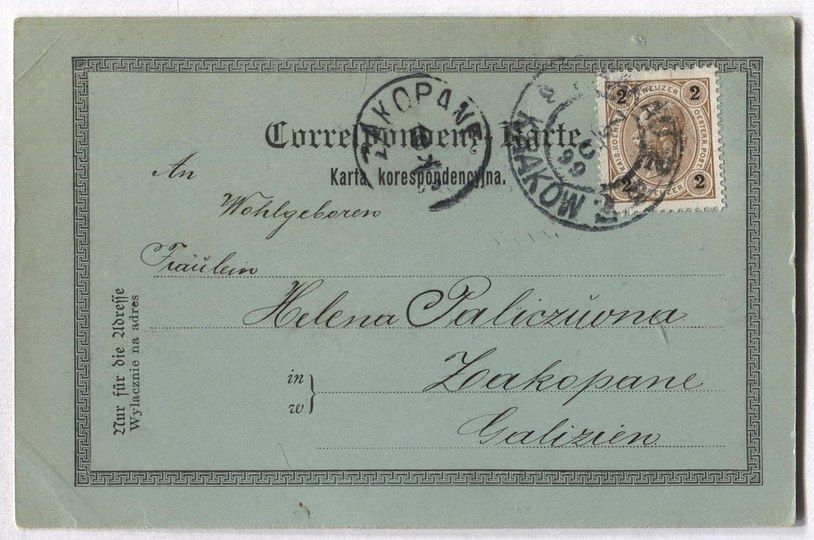 Correspondenz-Karte.
Karta korespondencyjna.
ZAKOPANE
KRAKÓW
99
2 KREUZER 2
OESTERR. POST
2 KREUZER 2
An
Wohlgeboren
Fräulein
Helena Paliczŭwna
in
w
Zakopane
Galizien
Nur für die Adresse
Wyłacznie na adres